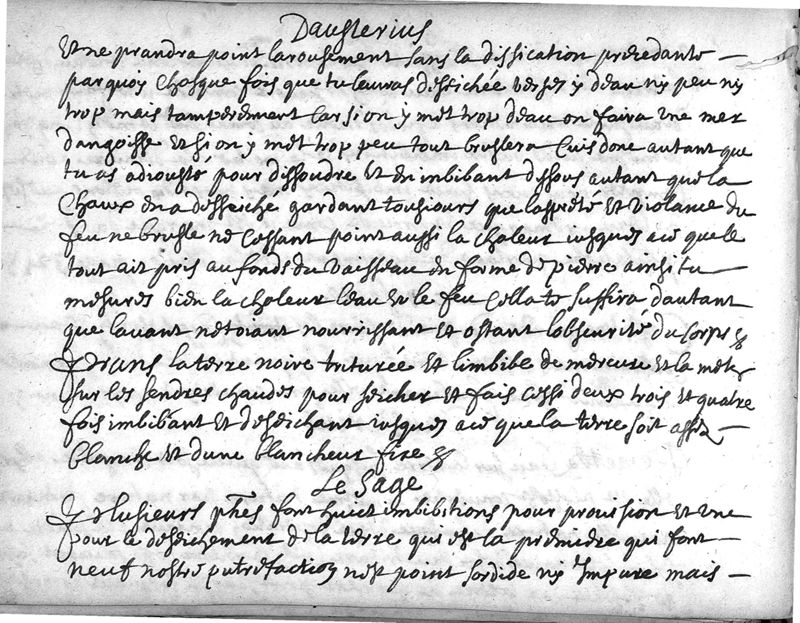 Dausterius
Et ne prandra point larousement sans la dissication precedante
parquoy chasque fois que tu lauras dessichée verses y deau ny peu ny
trop mais tamperement car si on y met trop deau on faira une mer
dangoisse et si on y met trop peu tout bruslera cuis donc autant que
tu as adiousté pour dissoudre et en imbibant dessous autant que la
chaux en a desseiché gardant tousiours que laspreté et violance du
feu ne brusle ne cessant point aussi la chaleur iusques a ce que le
tout ait pris au fonds du vaisseau en forme de pierre ainsi tu
mesures bien la chaleur leau et le feu cella te suffira dautant
que lavant netoiant nourrissant et ostant lobscurité du corps &
prans la terre noire triturée et limbibe de mercure et la mets
sur les sendres chaudes pour seicher et fais cessi deux trois et quatre
fois imbibant et deseichant iusques a ce que la terre soit assez
blanche et dune blancheur fixe &
Le Sage
Plusieurs phes font huict imbibitions pour provision et une
pour le deseichement de la terre qui est la premiere qui font
neuf nostre putrefaction nest point sordide ny Impure mais